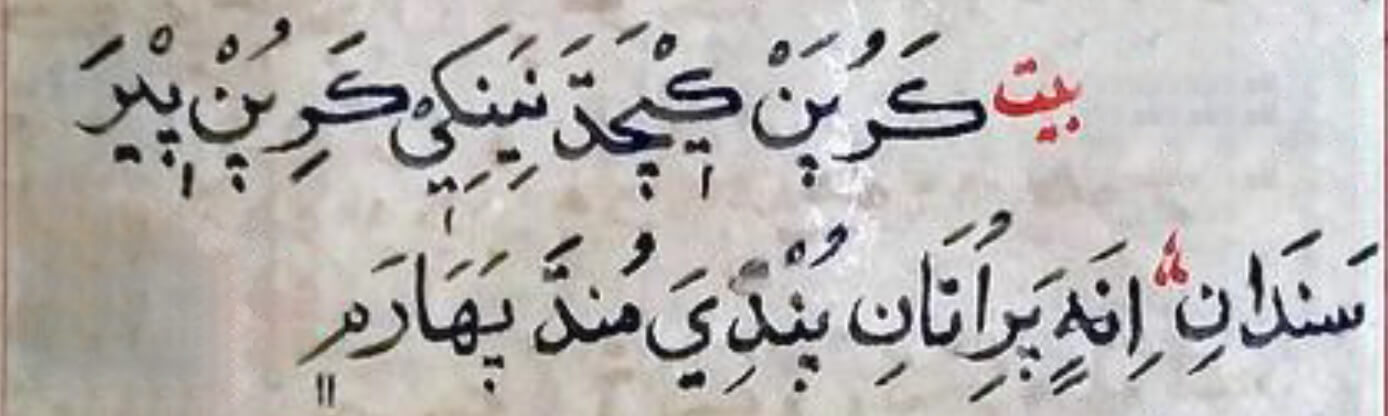 بيت كَرُ پَنْ كيْچَدَّ نَِينِكِيْ كَرِ پُنْ پيْرَ
سَندَانِ؞ اِنَهٍ پَرِاُتَانِ پُنْدِيَ مُندَّ پَهَارَمٍ